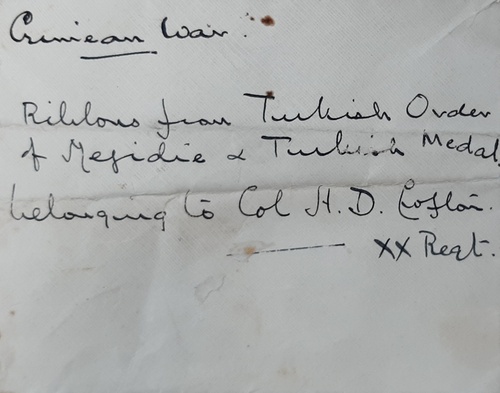 Crimean War.
Ribbons from Turkish Order
of Mejidie & Turkish Medal.
belonging to Col H. D.
XX Regt.